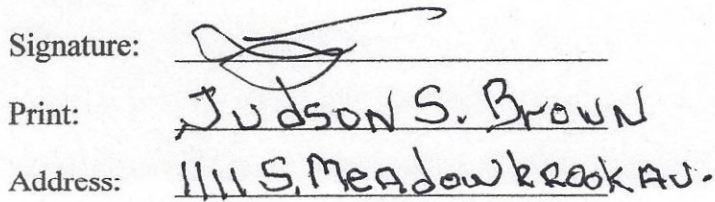 Signature:
Print: Judson S. Brown
Address: 1111 S. Meadowkrook Av.